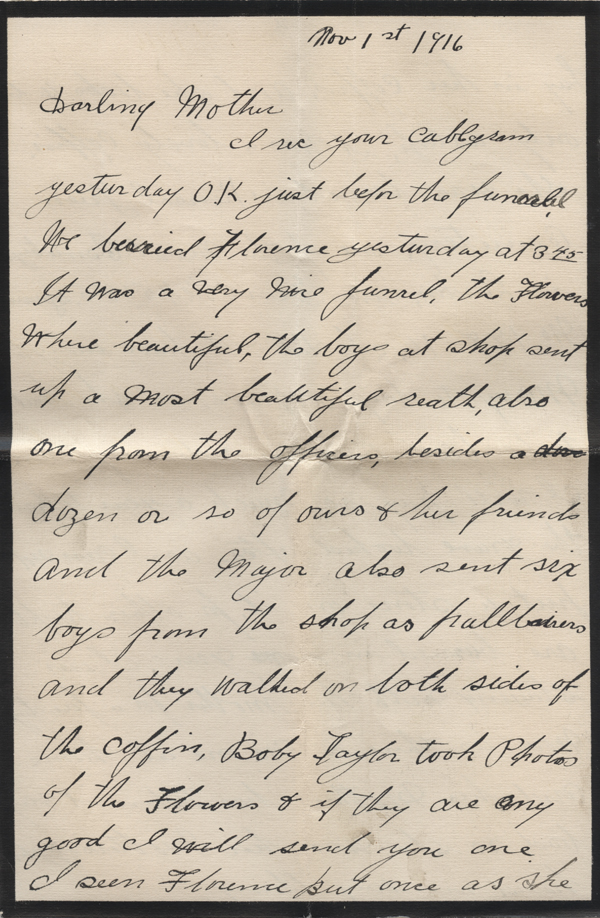 Nov 1st 1916
Darling Mother
I rec your cablegram
yesturday O.K. just befor the funerel
We beried Florence yesturday at 3 45
It was a very nice funrel, the Flowers
Where beautiful, the boys at shop sent
up a most beautiful reath, also
one from the officers, besides a
dozen or so of ours & her friends
and the Major also sent six
boys from the shop as pallbairers
and they walked on both sides of
the coffin, Boby Taylor took Photos
of the Flowers & if they are any
good I will send you one.
I seen Florence but once as she